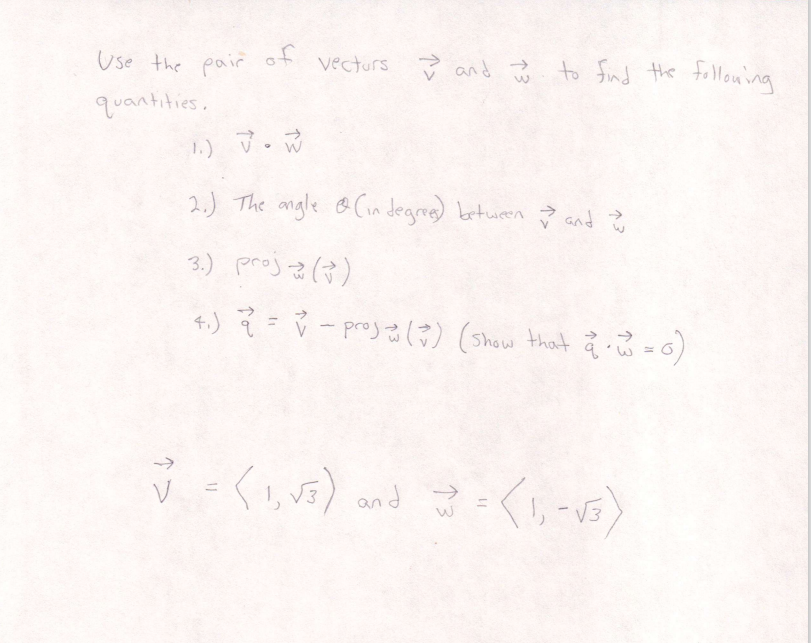 Use the pair of vectors v⃗ and w⃗ to find the following
quantities.
1.) v⃗ · w⃗
2.) The angle θ (in degrees) between v⃗ and w⃗
3.) proj w⃗ (v⃗)
4.) q⃗ = v⃗ - proj w⃗ (v⃗) (show that q⃗ · w⃗ = 0)
v⃗ = ⟨1, √3⟩ and w⃗ = ⟨1, -√3⟩